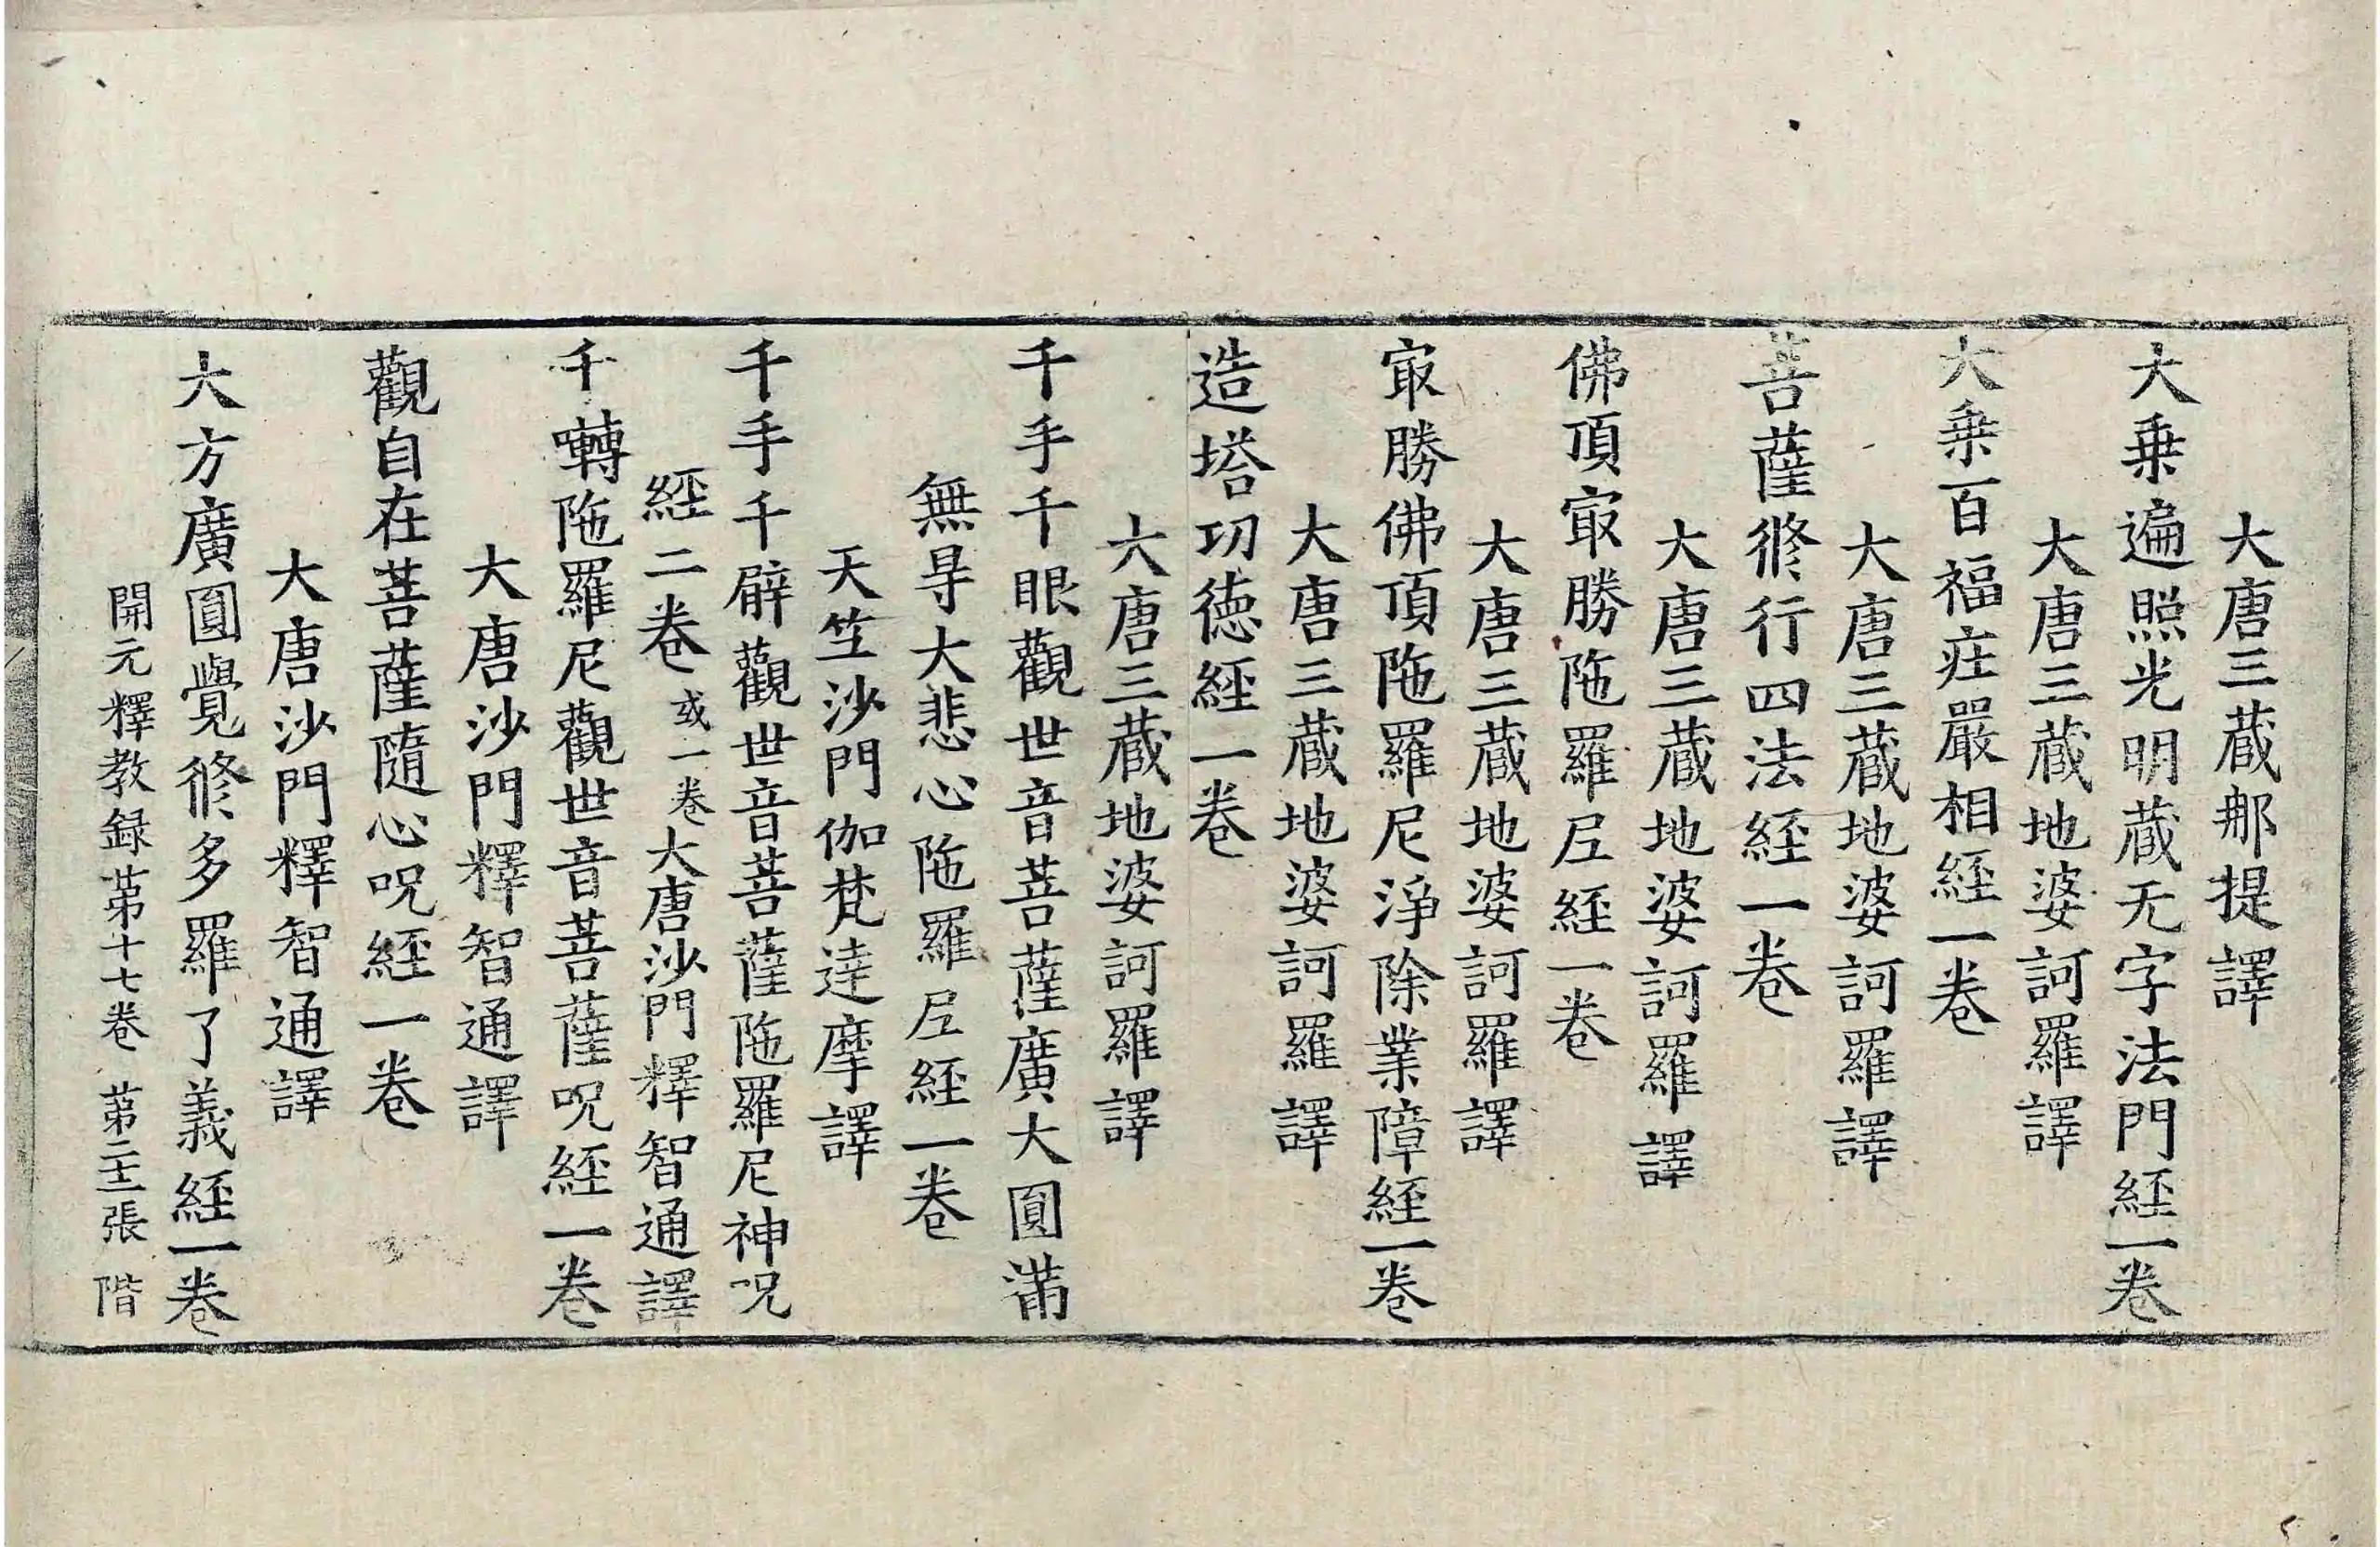 大唐三蔵那提譯
大乗遍照光明蔵无字法門經一卷
大唐三蔵地婆訶羅譯
大乗百福庄嚴相經一卷
大唐三蔵地婆訶羅譯
菩薩修行四法經一卷
大唐三蔵地婆訶羅譯
佛頂㝡勝陁羅𡰱經一卷
大唐三蔵地婆訶羅譯
㝡勝佛頂陁羅尼淨除業障經一卷
大唐三蔵地婆訶羅譯
造塔功德經一卷
大唐三蔵地婆訶羅譯
千手千眼觀世音菩薩廣大圓滿
無㝵大悲心陁羅𡰱經一卷
天竺沙門伽梵達摩譯
千手千臂觀世音菩薩陁羅尼神呪
經二卷 或一卷 大唐沙門釋智通譯
千囀陁羅尼觀世音菩薩呪經一卷
大唐沙門釋智通譯
觀自在菩薩隨心呪經一卷
大唐沙門釋智通譯
大方廣圓覺修多羅了義經一卷
開元釋教録苐十七卷 苐二十一張 階